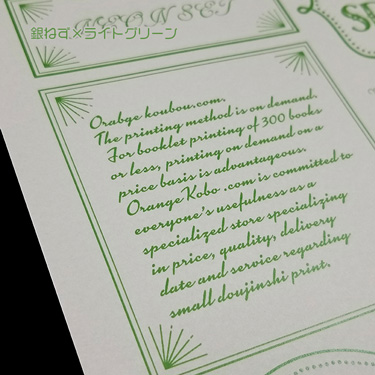 銀ねず×ライトグリーン
Orabge koubou.com.
The printing method is on demand.
For booklet printing of 300 books
or less, printing on demand on a
price basis is advantageous.
Orange Kobo .com is committed to
everyone's usefulness as a
specialized store specializing
in price, quality, delivery
date and service regarding
small doujinshi print.